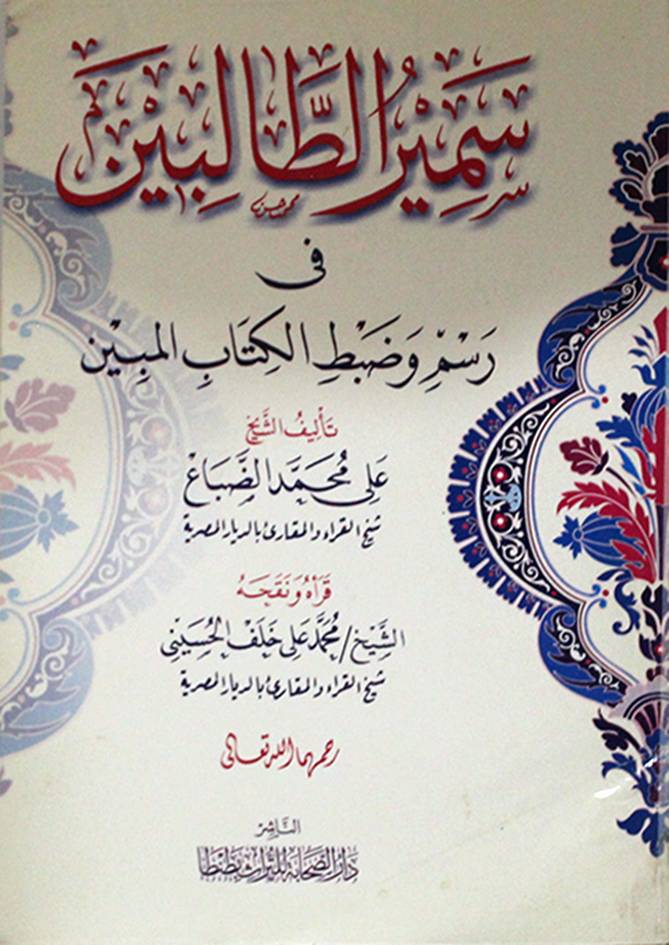 سَمِيْرُ الطَّالِبِيْن
فى
رَسْمِ وَضَبْطِ الكِتَابِ المبِيْن
تَأليفُ الشَّيْخ
عَلى مُحَمَّد الضَّبَاعْ
شيخ القراء والمقارئ بالديار المصرية
قَرَأهُ وَنَقَحَهُ
الشَّيْخ/مُحَمَّد عَلى خَلَفْ الحُسَيْنِى
شيخ القراء والمقارئ بالديار المصرية
رحمهما الله تعالى
النَّاشِر
دَارُ الصَّحَابَة للتُّرَاث بطَنْطَا